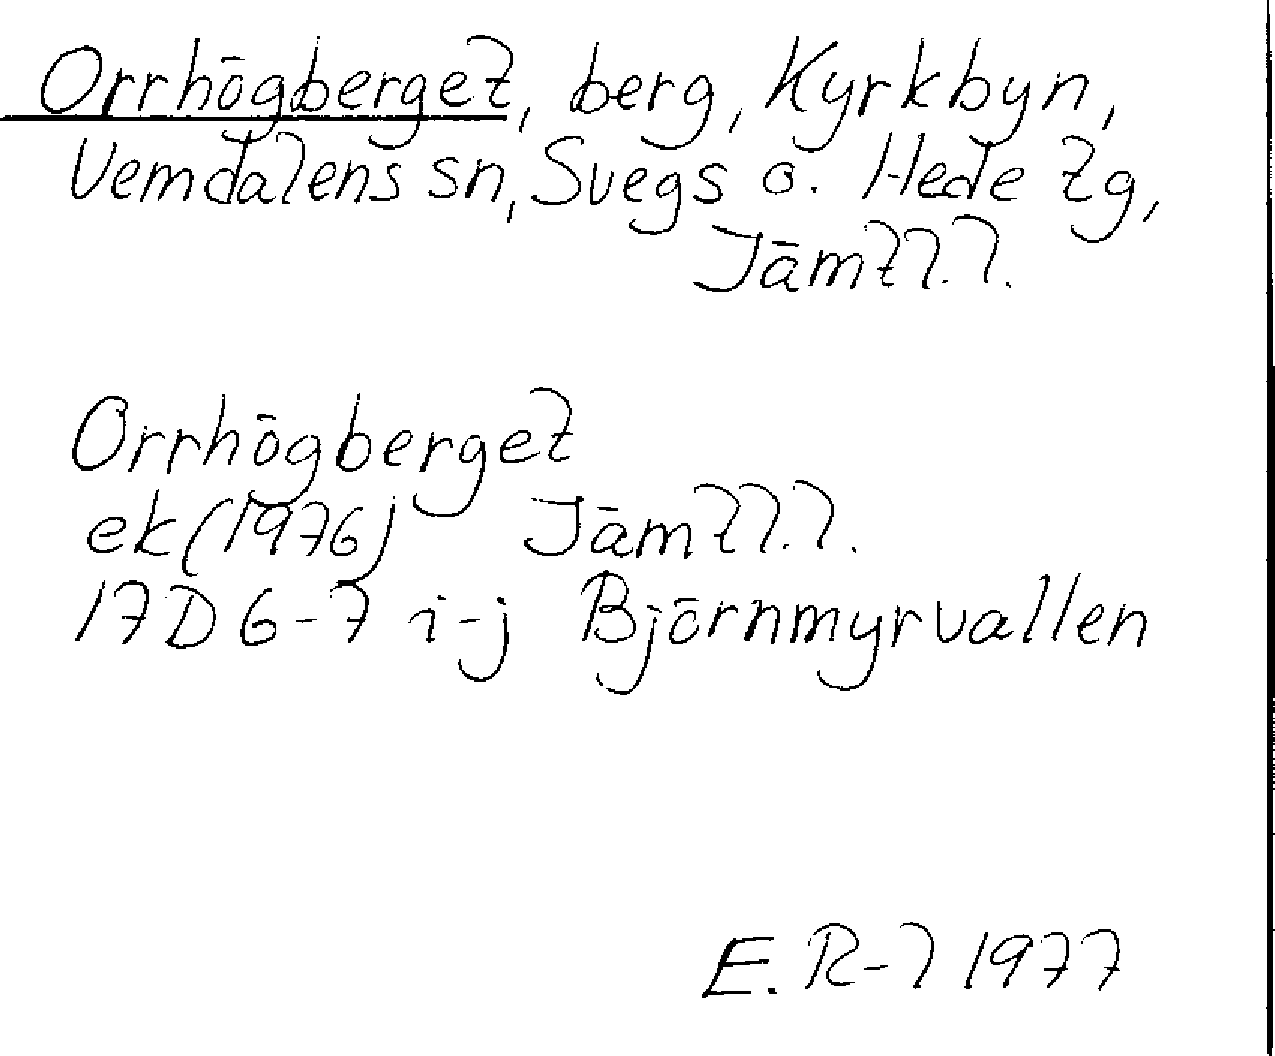 Orrhögberget, berg, Kyrkbyn,
Vemdalens sn, Svegs o. Hede tg,
Jämtl.l.
Orrhögberget
ek(1976) Jämtl.l.
17D 6-7 i-j Björnmyrvallen
E. R-l 1977